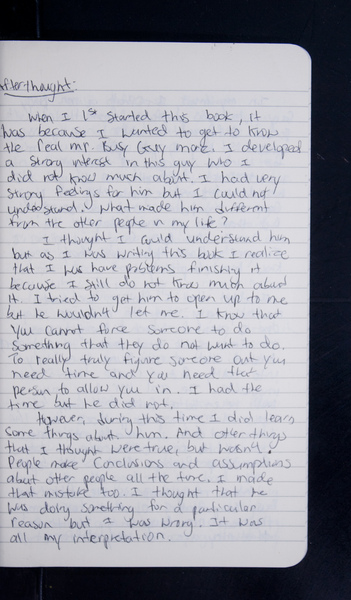 Afterthought:
When I 1st started this book, it
was because I wanted to get to know
the real Mr. Busy Guy more. I developed
a strong interest in this guy who I
did not know much about. I had very
strong feelings for him but I could not
understand. What made him different
from the other people in my life?
I thought I could understand him
but as I was writing this book I realize
that I was have problems finishing it
because I still do not know much about
it. I tried to get him to open up to me
but he wouldn't let me. I know that
you cannot force someone to do
something that they do not want to do.
To really truly figure someone out you
need time and you need that
person to allow you in. I had the
time but he did not.
However, during this time I did learn
some things about him. And other things
that I thought were true, but wasn't.
People make conclusions and assumptions
about other people all the time. I made
that mistake too. I thought that he
was doing something for a particular
reason but I was wrong. It was
all my interpretation.